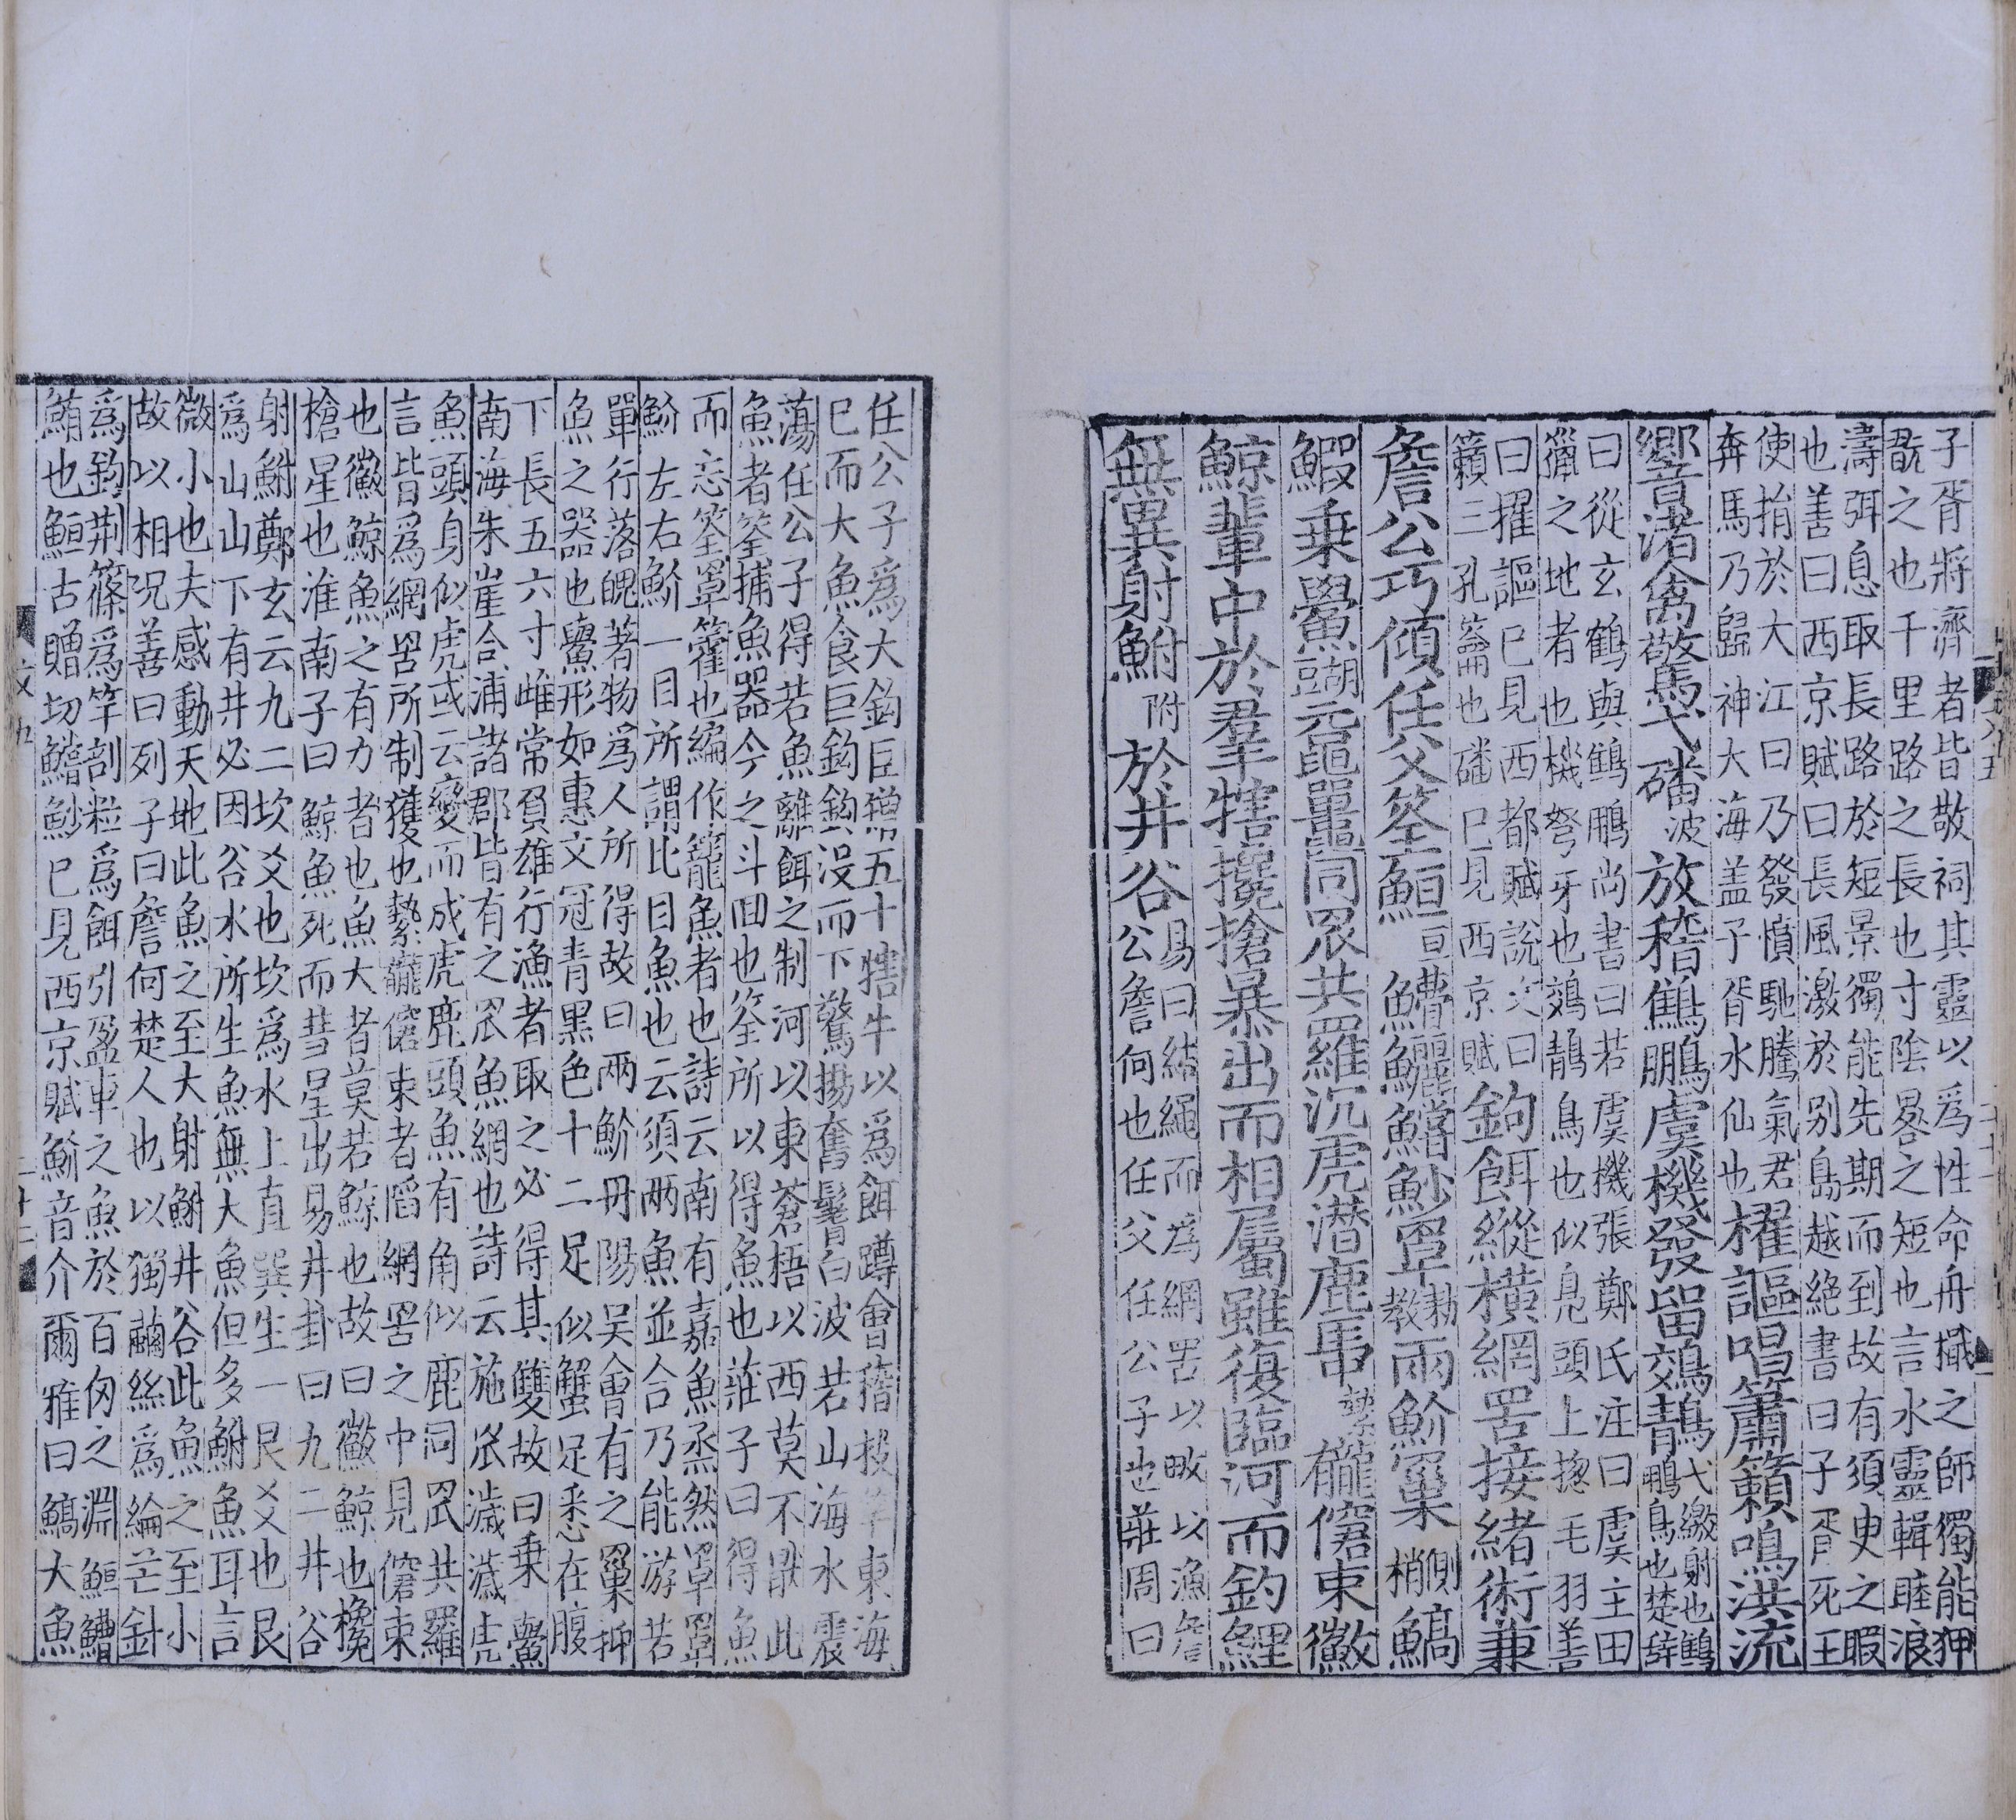 子胥將濟者皆敬祠其靈以爲性命舟檝之師獨能狎
翫之也千里路之長也寸陰晷之短也言水靈輯睦浪
濤弭息取長路於短景獨能先期而到故有須臾之暇
也善曰西京賦曰長風激於别島越絶書曰子胥死王
使捐於大江曰乃發憤馳騰氣若
奔馬乃歸神大海盖子胥水仙也
櫂謳唱簫籟鳴洪流
響渚禽驚弋磻波放稽鷦鵬虞機發留鵁鶄
弋繳射也鷦
鵬鳥也楚辭
曰從玄鶴與鷦鵬尚書曰若虞機張鄭氏注曰虞主田
獵之地者也機弩牙也鵁鶄鳥也似鳧頭上揔毛羽善
曰櫂謳已見西都賦說文曰
籟三孔籥也磻已見西京賦
鉤餌縱橫網罟接緒術兼
詹公巧傾任父筌䱎亘鱛鱺鱨魦罩勅教兩魪罺側梢鰝
鰕乘鱟胡豆黿鼉同罛共羅沉虎潜鹿馽縶僒束徽
鯨輩中於羣犗攙搶暴出而相屬雖復臨河而釣鯉
無異射鮒附於井谷
易曰結繩而爲網罟以畋以漁詹
公詹何也任父任公子也莊周曰
任公子爲大鉤巨緇五十犗牛以爲餌蹲會稽投竿東海
巳而大魚食巨鉤鉤没而下驚揚奮鬐白波若山海水震
蕩任公子得若魚離餌之制河以東蒼梧以西莫不猒此
魚者筌捕魚器今之斗回也筌所以得魚也莊子曰得魚
而忘筌罩籗也編作籠魚者也詩云南有嘉魚烝然罩罩
魪左右魪一目所謂比目魚也云須兩魚並合乃能游若
單行落魄著物爲人所得故曰兩魪丹陽吴會有之罺抑
魚之器也鱟形如惠文冠青黑色十二足似蟹足悉在腹
下長五六寸雌常負雄行漁者取之必得其雙故曰乗鱟
南海朱崖合浦諸郡皆有之罛魚網也詩云施罛濊濊虎
魚頭身似虎或云變而成虎鹿頭魚有角似鹿同罛共羅
言皆爲網罟所制獲也縶僒束者謟網罟之中見僒束
也徽鯨魚之有力者也魚大者莫若鯨也故曰徽鯨也欃
槍星也淮南子曰鯨魚死而彗星出易井卦曰九二井谷
射鮒鄭玄云九二坎爻也坎爲水上直巽生一艮爻也艮
爲山山下有井必因谷水所生魚無大魚但多鮒魚耳言
微小也夫感動天地此魚之至大射鮒井谷此魚之至小
故以相况善曰列子曰詹何楚人也以獨繭絲爲綸芒針
爲鉤荆篠爲竿剖粒爲餌引盈車之魚於百仞之淵䱎鱛
鮪也䱎古贈切鱨魦巳見西京賦魪音介爾雅曰鰝大魚